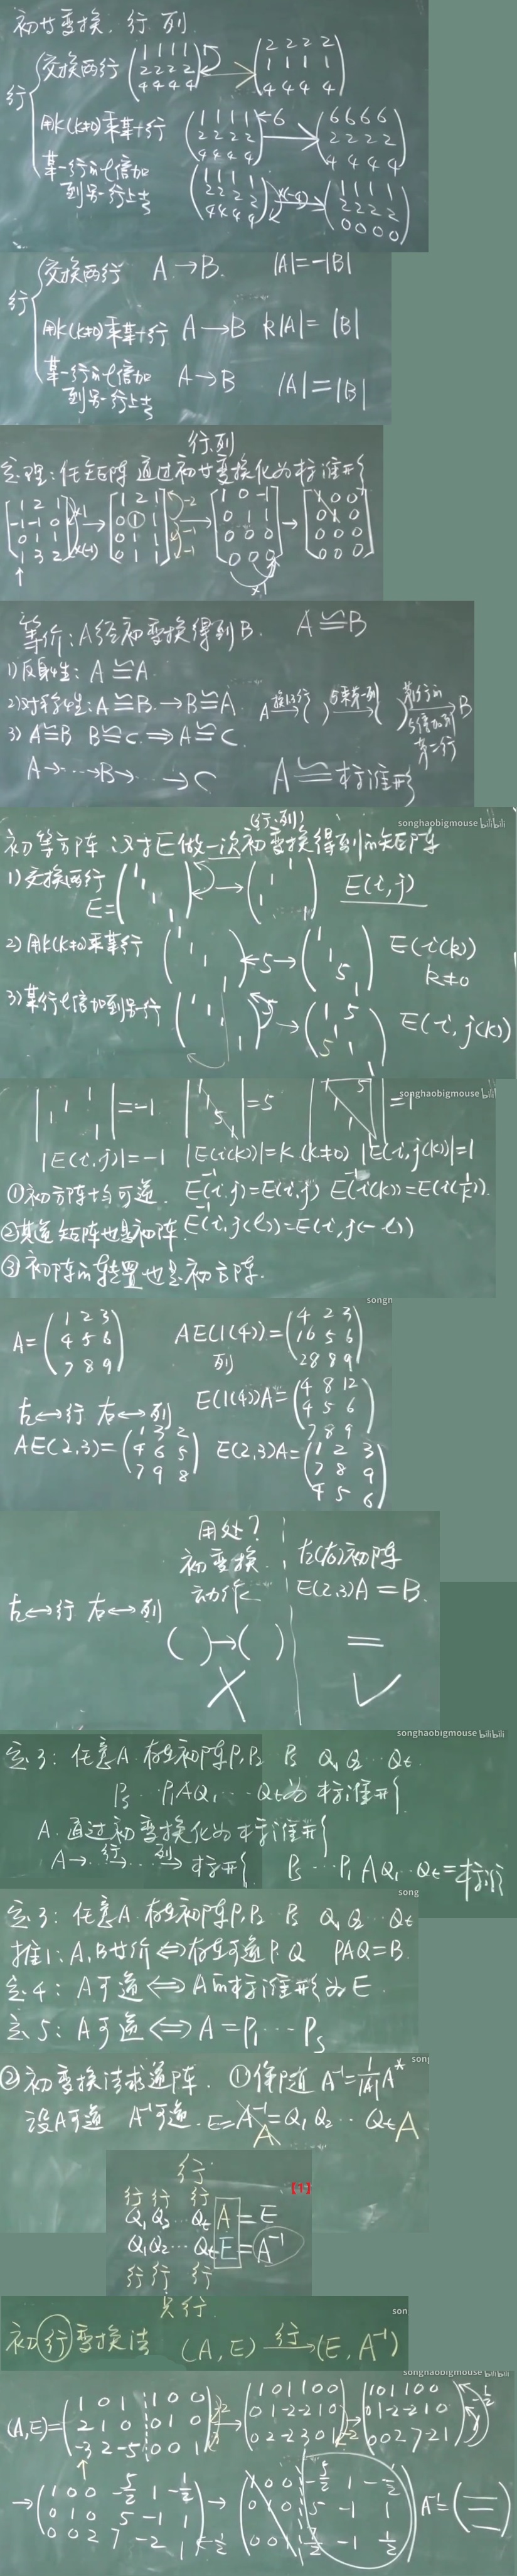 初等变换. 行. 列.
行
交换两行 (1 1 1 1 / 2 2 2 2 / 4 4 4 4) → (2 2 2 2 / 1 1 1 1 / 4 4 4 4)
用k(k≠0)乘某行 (1 1 1 1 / 2 2 2 2 / 4 4 4 4) ←6 → (6 6 6 6 / 2 2 2 2 / 4 4 4 4)
某一行的l倍加
到另一行上去 (1 1 1 1 / 2 2 2 2 / 4 4 4 4) ×(-4) → (1 1 1 1 / 2 2 2 2 / 0 0 0 0)
行
交换两行 A→B. |A|=-|B|
用k(k≠0)乘某行 A→B k|A|=|B|
某一行的l倍加
到另一行上去 A→B |A|=|B|
行.列
定理:任矩阵 通过初等变换化为标准形
[1 2 1 / -1 -1 0 / 0 1 1 / 1 3 2] ×1 ×(-1) → [1 2 1 / 0 1 1 / 0 1 1 / 0 1 1] -2 -1 -1 → [1 0 -1 / 0 1 1 / 0 0 0 / 0 0 0] ×1 → [1 0 0 / 0 1 0 / 0 0 0 / 0 0 0]
等价:A经初变换得到B. A≌B
1)反身性: A≌A.
2)对称性: A≌B → B≌A
3) A≌B B≌C ⇒ A≌C
A→…→B→…→C
A ( ) ( ) B
5倍加到
第二行
A≌标准形
(行.列)
songhaobigmouse bilibili
初等方阵:对于E做一次初变换得到的矩阵
1)交换两行
E=(1 1 1 1) → (1 1 1 1) E(i,j)
2)用k(k≠0)乘某行 (1 1 1 1) ←5→ (1 1 5 1) E(i(k)) k≠0
3)某行l倍加到另一行 (1 1 1 1) 5 → (1 5 1 5 1 1) E(i,j(k))
songhaobigmouse bili
|1 1 1 1|=-1 |1 1 5|=5 |1 5 1 1|=1
|E(i,j)|=-1 |E(i(k))|=k (k≠0) |E(i,j(k))|=1
①初方阵均可逆. E⁻¹(i,j)=E(i,j) E⁻¹(i(k))=E(i(1/k)).
②其逆矩阵也是初阵. E⁻¹(i,j(l))=E(i,j(-l))
③初阵的转置也是初方阵.
song
A=(1 2 3 / 4 5 6 / 7 8 9) AE(1(4))=(4 2 3 / 16 5 6 / 28 8 9)
列
左↔行 右↔列 E(1(4))A=(4 8 12 / 4 5 6 / 7 8 9)
AE(2,3)=(1 3 2 / 4 6 5 / 7 9 8) E(2,3)A=(1 2 3 / 7 8 9 / 4 5 6)
用处?
初变换 左(右)初阵
动作 E(2,3)A=B.
左↔行 右↔列
( )→( ) =
× ✓
songhaobigmouse bilibili
定3: 任意A 存在初阵P₁P₂ Ps Q₁Q₂…Qt.
Ps…P₁AQ₁…Qt为标准形
A.通过初变换化为标准形
A→行→列→标形 Ps…P₁AQ₁…Qt=标准
song
定3: 任意A 存在初阵P₁P₂ Ps Q₁Q₂…Qt
推1: A,B等价⇔存在可逆P.Q PAQ=B.
定4: A可逆⇔A的标准形为E.
定5: A可逆⇔A=P₁…Ps
song
②初变换法求逆阵. ①伴随 A⁻¹=1/|A| A*
设A可逆 A⁻¹可逆. E=A⁻¹=Q₁Q₂…Qt A
A
行
[1]
行 行 行
Q₁Q₂…Qt A=E
Q₁Q₂…Qt E=A⁻¹
行 行 行
只行.
son
初行变换法 (A,E) 行→ (E,A⁻¹)
songhaobigmouse bilibili
(A,E)=(1 0 1 1 0 0 / 2 1 0 0 1 0 / -3 2 -5 0 0 1) → (1 0 1 1 0 0 / 0 1 -2 -2 1 0 / 0 2 -2 3 0 1) -2 → (1 0 1 1 0 0 / 0 1 -2 -2 1 0 / 0 0 2 7 -2 1) -1/2
→(1 0 0 -5/2 1 -1/2 / 0 1 0 5 -1 1 / 0 0 2 7 -2 1) ←1/2 → (1 0 0 -5/2 1 -1/2 / 0 1 0 5 -1 1 / 0 0 1 7/2 -1 1/2) A⁻¹=( )